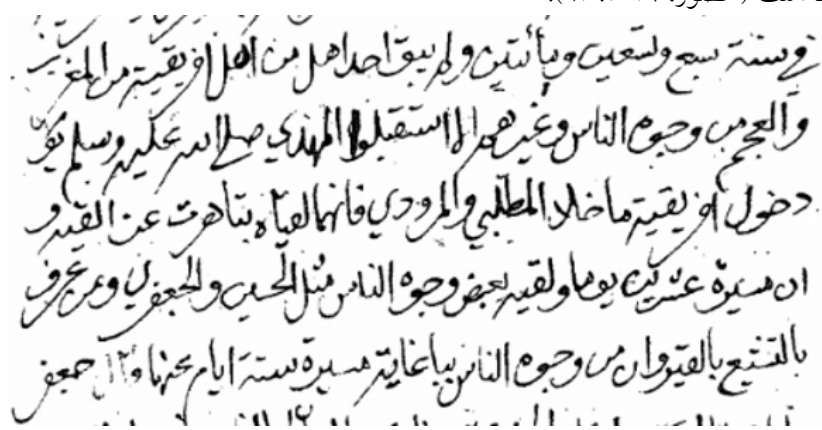 في سنة سبع وتسعين ومأئتين ولم يبق احد اهل من اهل افريقية من
والعجم من وجوه الناس وغيرهم الا استقبلوا المهدي صلى الله عليه وسلم
دخول افريقية ما خلا المطلبي والمرودي فانهما لقياه بتاهرت عن القيرو
ان مسيرة عشرين يوما ولقيه بعض وجوه الناس مثل الحسين والجعفري ومن عرف
بالتشيع بالقيروان من وجوه الناس بباغاية مسيرة ستة ايام جعفر